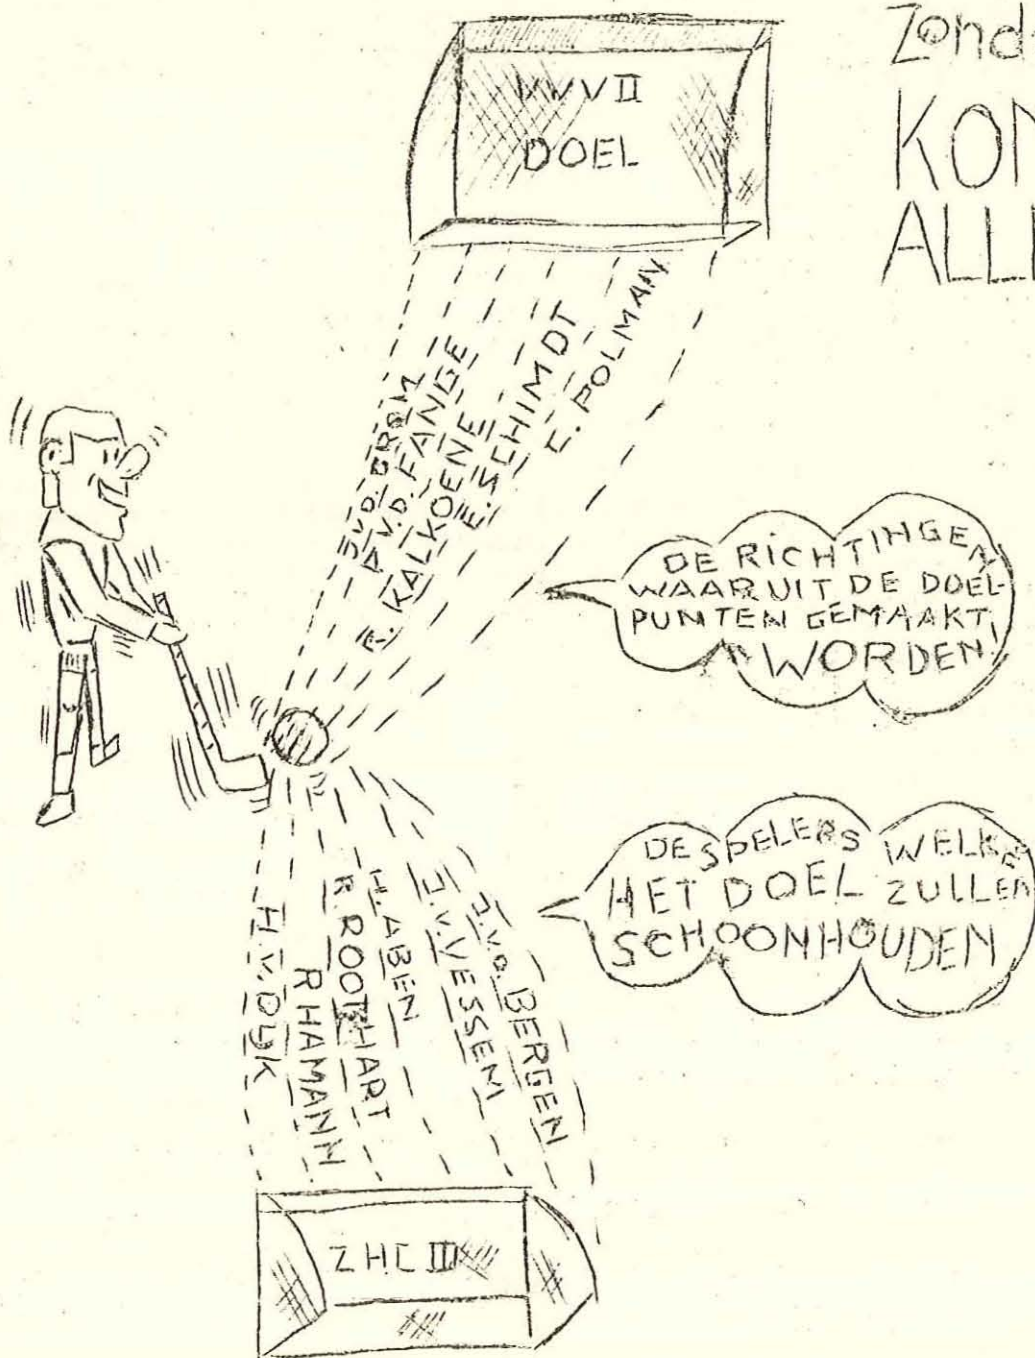 VVV II
DOEL
Zond
KON
ALL
J.V.D. BROM
A.V.D. FANGE
KALKOENE
E. SCHIMDT
POLMAN
DE RICHTINGEN
WAARUIT DE DOEL-
PUNTEN GEMAAKT
WORDEN!
DE SPELERS WELKE
HET DOEL ZULLEN
SCHOONHOUDEN
H.V. DYK
R HAMANN
R. ROOTHART
H. ABEN
J.V. VESSEM
J.V.D. BERGEN
ZHC III